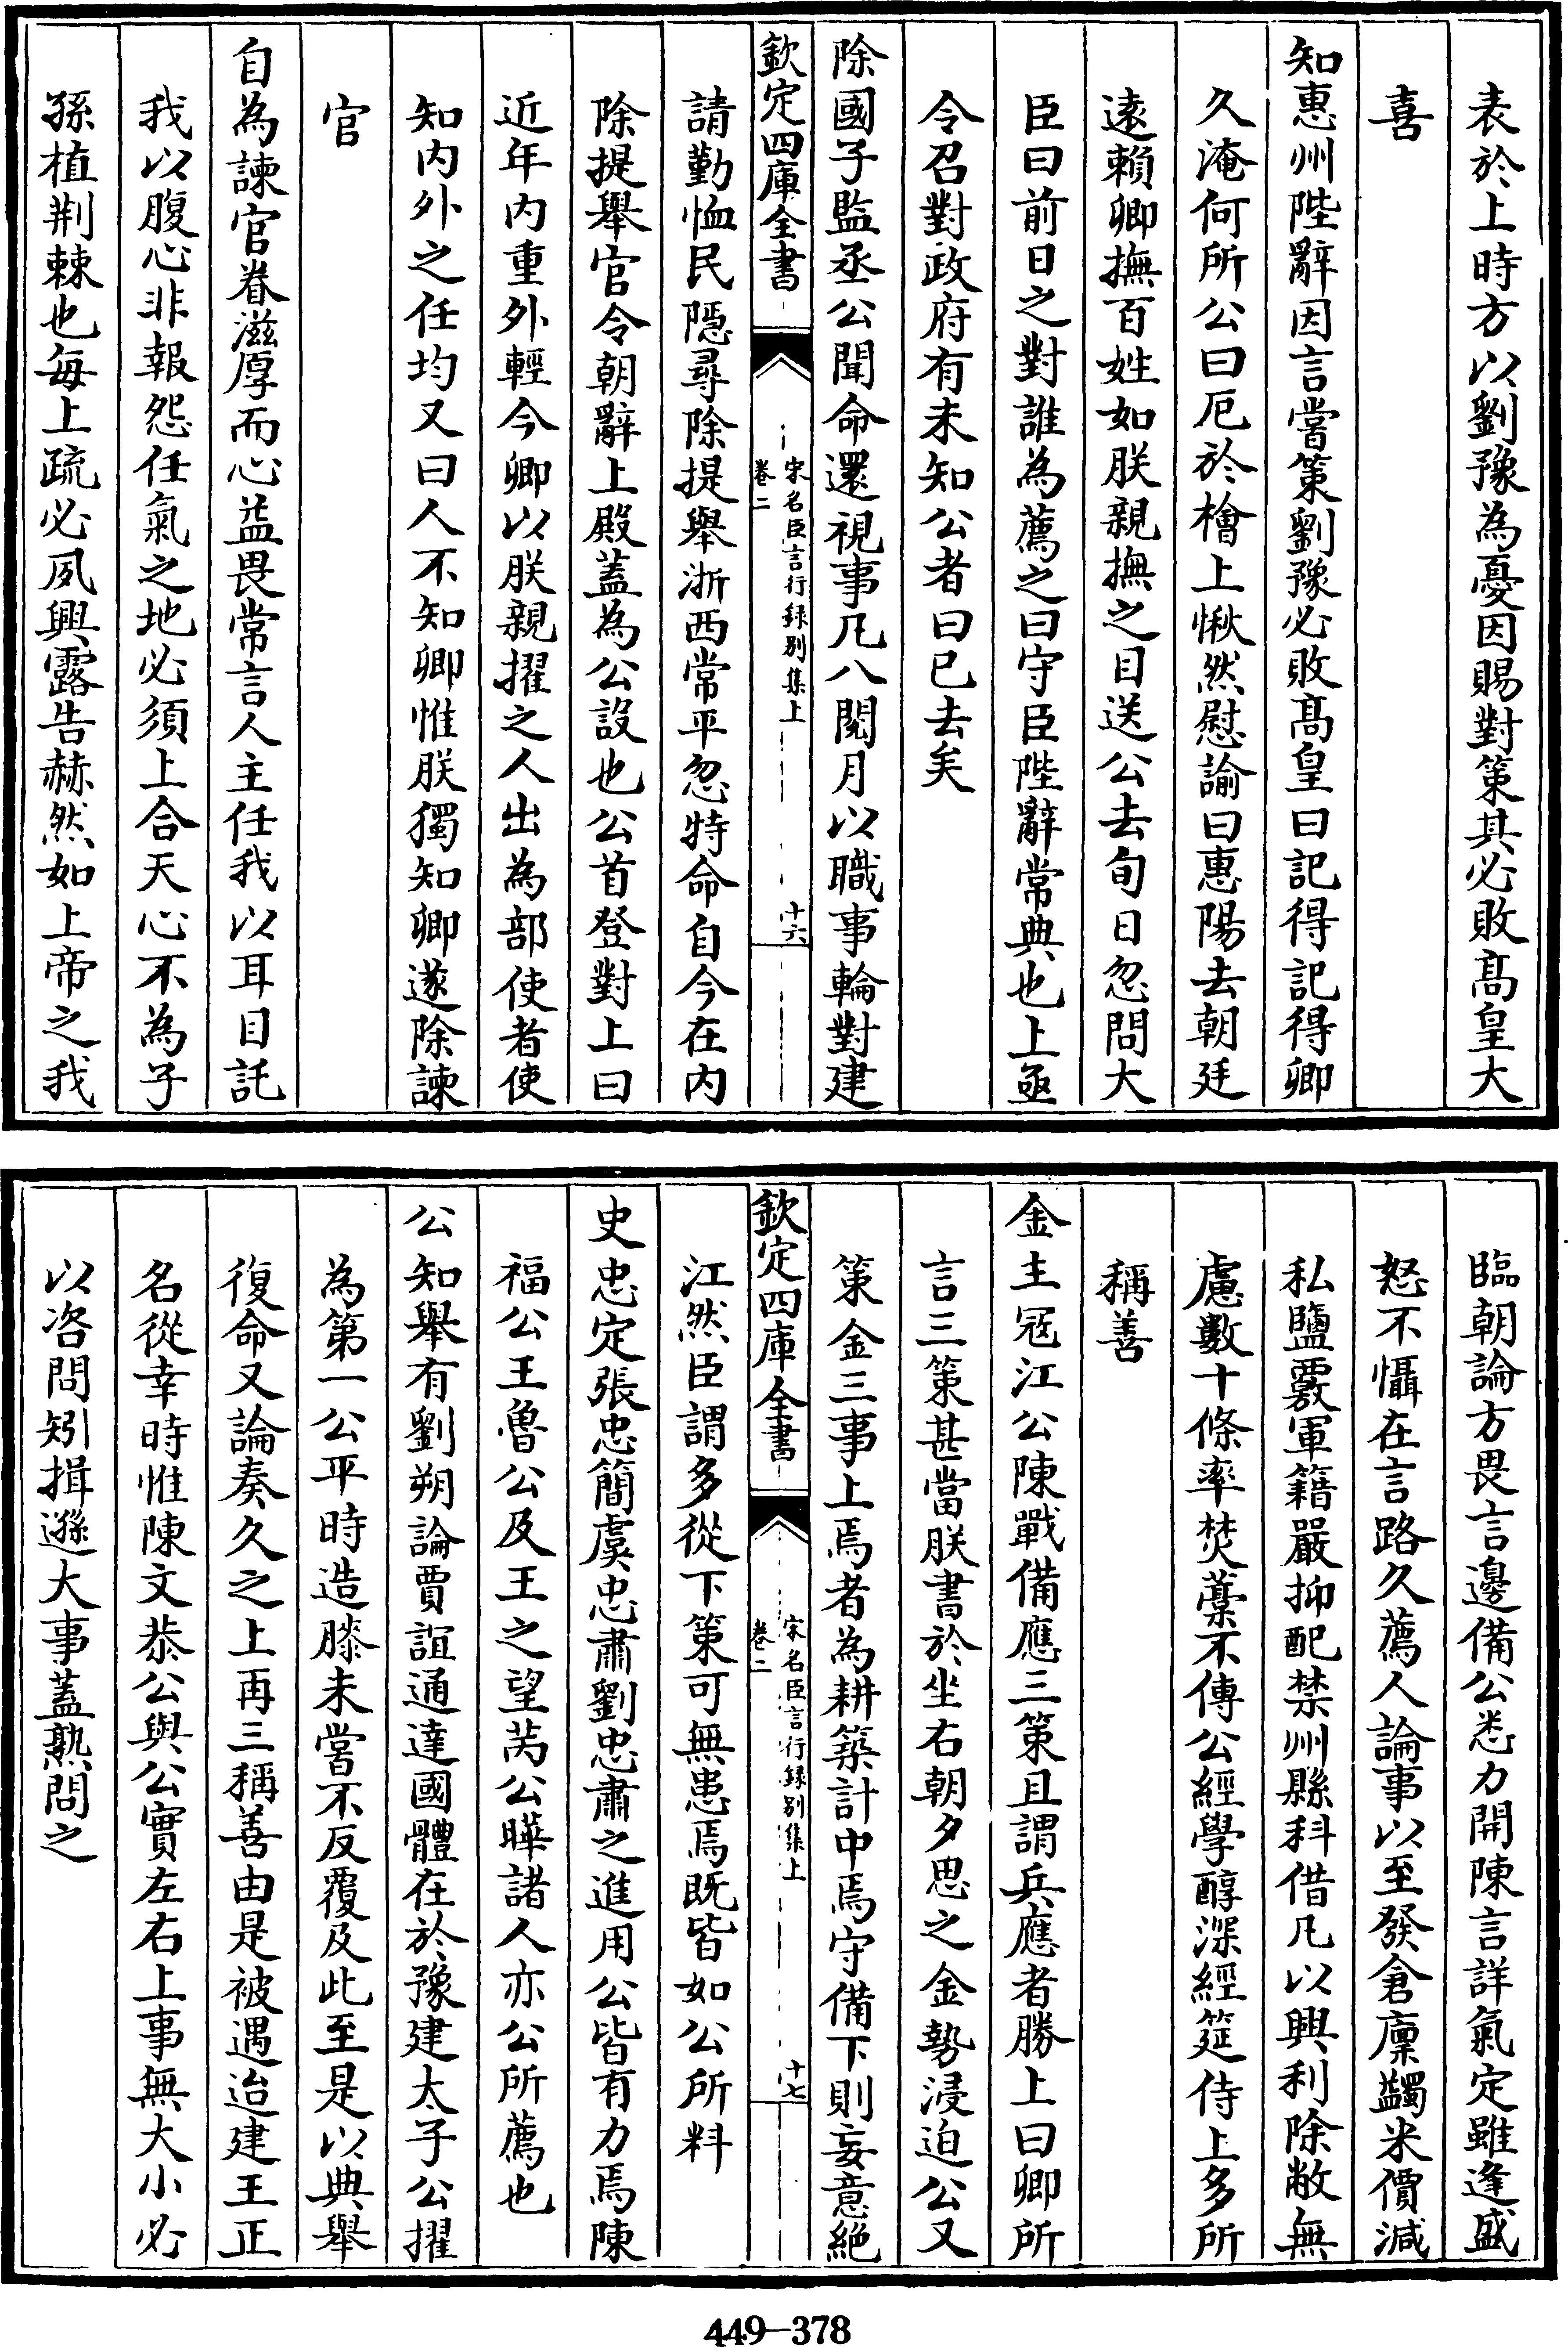 表於上時方以劉豫為憂因賜對策其必敗髙皇大
喜
知惠州陛辭因言嘗策劉豫必敗髙皇曰記得記得卿
久淹何所公曰厄於檜上愀然慰諭曰惠陽去朝廷
逺賴卿撫百姓如朕親撫之目送公去旬日忽問大
臣曰前日之對誰為薦之曰守臣陛辭常典也上亟
令召對政府有未知公者曰已去矣
除國子監丞公聞命還視事凡八閱月以職事輪對建
欽定四庫全書
宋名臣言行録别集上
卷二
十六
請勤恤民隠尋除提舉浙西常平忽特命自今在内
除提舉官令朝辭上殿蓋為公設也公首登對上曰
近年内重外輕今卿以朕親擢之人出為部使者使
知内外之任均又曰人不知卿惟朕獨知卿遂除諫
官
自為諫官眷滋厚而心益畏常言人主任我以耳目託
我以腹心非報怨任氣之地必須上合天心不為子
孫植荆棘也每上疏必夙興露告赫然如上帝之我
臨朝論方畏言邊備公悉力開陳言詳氣定雖逢盛
怒不懾在言路久薦人論事以至發倉廩蠲米價減
私鹽覈軍籍嚴抑配禁州縣科借凡以興利除敝無
慮數十條率焚藁不傳公經學醇深經筵侍上多所
稱善
金主冦江公陳戰備應三策且謂兵應者勝上曰卿所
言三策甚當朕書於坐右朝夕思之金勢浸迫公又
策金三事上焉者為耕築計中焉守備下則妄意絶
欽定四庫全書
宋名臣言行録别集上
卷二
十七
江然臣謂多從下策可無患焉既皆如公所料
史忠定張忠簡虞忠肅劉忠肅之進用公皆有力焉陳
福公王魯公及王之望芮公曄諸人亦公所薦也
公知舉有劉朔論賈誼通達國體在於豫建太子公擢
為第一公平時造膝未嘗不反覆及此至是以典舉
復命又論奏久之上再三稱善由是被遇迨建王正
名從幸時惟陳文恭公與公實左右上事無大小必
以咨問矧揖遜大事蓋熟問之
449—378